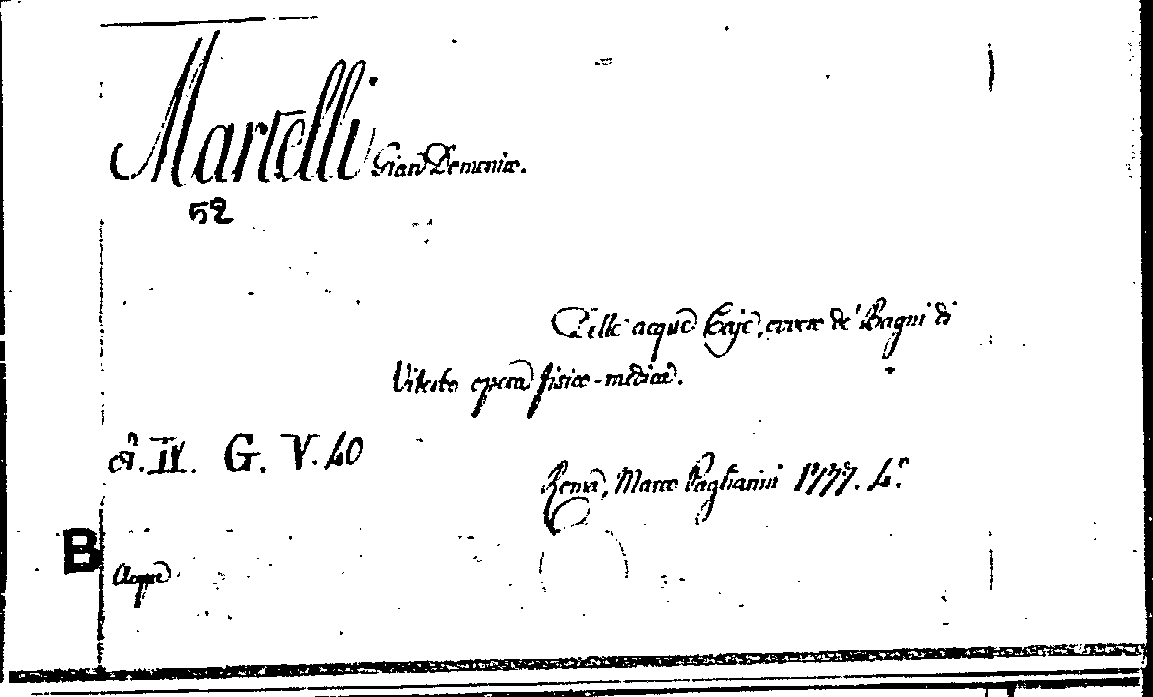 Martelli Gian Domenico.
52
Delle acque Caje, ovvero de' Bagni di
Viterbo opera fisico-medica.
IV. G. V. 40
Roma, Marco Pagliarini 1777. 4.°
B
Acque